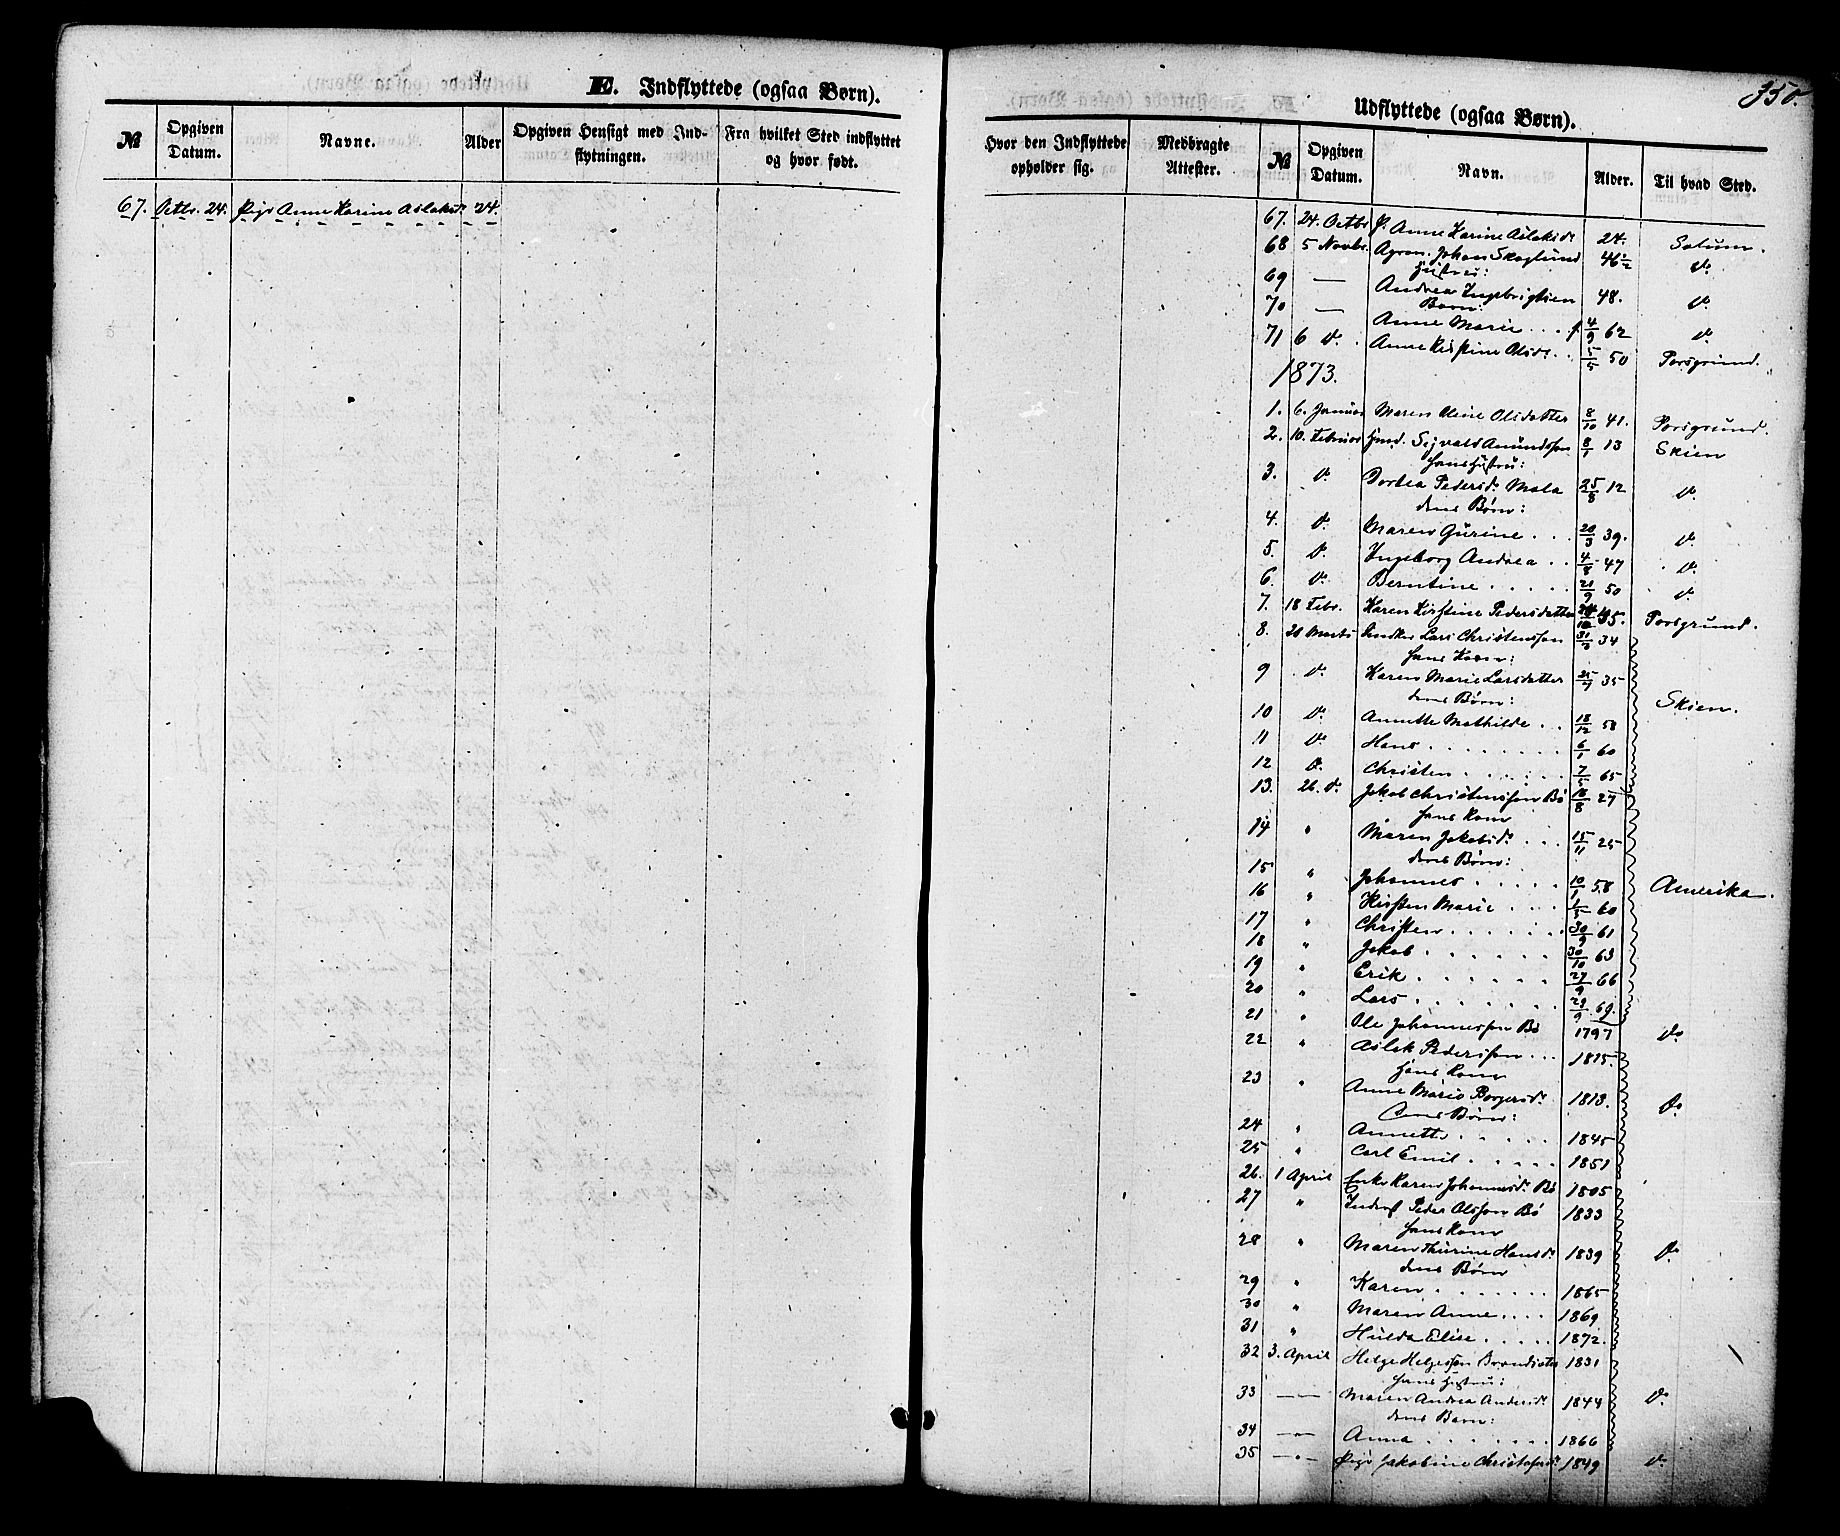 E. Indflyttede (ogsaa Børn).
№ Opgiven Datum. Navne. Alder Opgiven Hensigt med Indflytningen. Fra hvilket Sted indflyttet og hvor født.
67. Octbr. 24. Pige Anne Karine Aslaksd. 24.
350.
Udflyttede (ogsaa Børn).
Hvor den Indflyttede opholder sig. Medbragte Attester. № Opgiven Datum. Navn. Alder. Til hvad Sted.
67. 24. Octbr P. Anne Karine Aslaksd. 24. Solum.
68 5 Novbr. Agron. Johan Skoglund 46½ do
Hustru:
69 — Andrea Ingebrigtsen 48. do
Barn:
70 — Anne Marie . . . 4/9 62 do
71 6 do. Anne Kirstine Olsd. . . 5/5 50 Porsgrund.
1873.
1. 6. Januar Maren Oline Olsdatter 8/10 41. Porsgrund.
2. 10. Februar Hmd. Sigvald Amundssøn 8/1 13 Skien
hans Hustru:
3. do Dorthea Pedersd. Mæla 25/8 12 do
dens Børn:
4. do Maren Gurine . . . 20/3 39. do
5. do Ingeborg Andrea . . 4/8 47 do
6. do Berntine . . . . . 21/9 50 do
7. 18 Febr. Karen Kirstine Pedersdatter 35. Porsgrund.
8. 20 Marts Lars Christenssøn 31/3 34
hans Kone:
9 do. Karen Marie Larsdatter 25/7 35
dens Børn: Skien.
10 do. Annette Mathilde . . 18/12 58
11 do. Hans . . . . . . . . 6/1 60
12 do. Christen . . . . . . 7/5 65
13. 26. do. Jakob Christenssøn Bø 18/8 27
hans Kone
14 " Maren Jakobsd. . . . 15/11 25
dens Børn:
15 " Johannes . . . . . 10/1 58 Amerika.
16 " Kirsten Marie . . . . 1/5 60
17 " Christen . . . . . . . 30/9 61
18 " Jakob . . . . . . 30/10 63
19 " Erik . . . . . . 27/9 66
20 " Lars . . . . . . . 29/9 69.
21 " Ole Johannessøn Bø 1797 do
22 " Aslak Pederssøn . . . 1815
hans Kone
23 " Anne Marie Borgersd. 1813. do
Børn:
24 " Annette . . . . . 1845
25 " Carl Emil . . . . . 1851
26. 1 April Enke Karen Johannesd. Bø 1805
27 " Inderst Peder Olssøn Bø 1833
hans Kone
28 " Maren Thurine Hansd. 1839 do
dens Børn
29 " Karen . . . . . . . . 1865
30 " Maren Anne . . . . 1869
31 " Hulda Elise . . . . . 1872.
32 3. April Helge Helgessøn 1831
hans Hustru:
33 — Maren Andrea Andersd. 1844 do.
dens Barn:
34 — Anna . . . . . . . . 1866
35 — Pige Jakobine Christofersd. 1849 do.